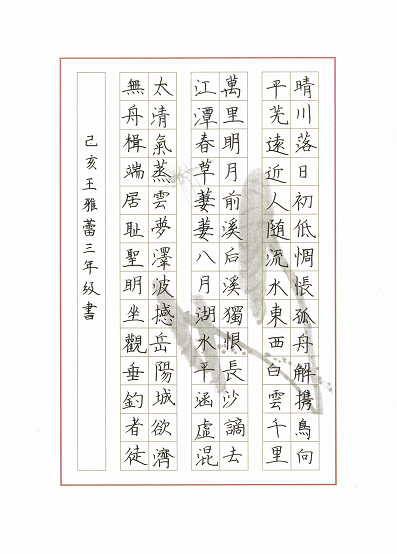 晴川落日初低惆悵孤舟解携鳥向
平芜遠近人随流水東西白雲千里
萬里明月前溪后溪獨恨長沙謫去
江潭春草萋萋八月湖水平涵虛混
太清氣蒸雲夢澤波撼岳陽城欲濟
無舟楫端居耻聖明坐觀垂釣者徒
己亥王雅蕾三年级書